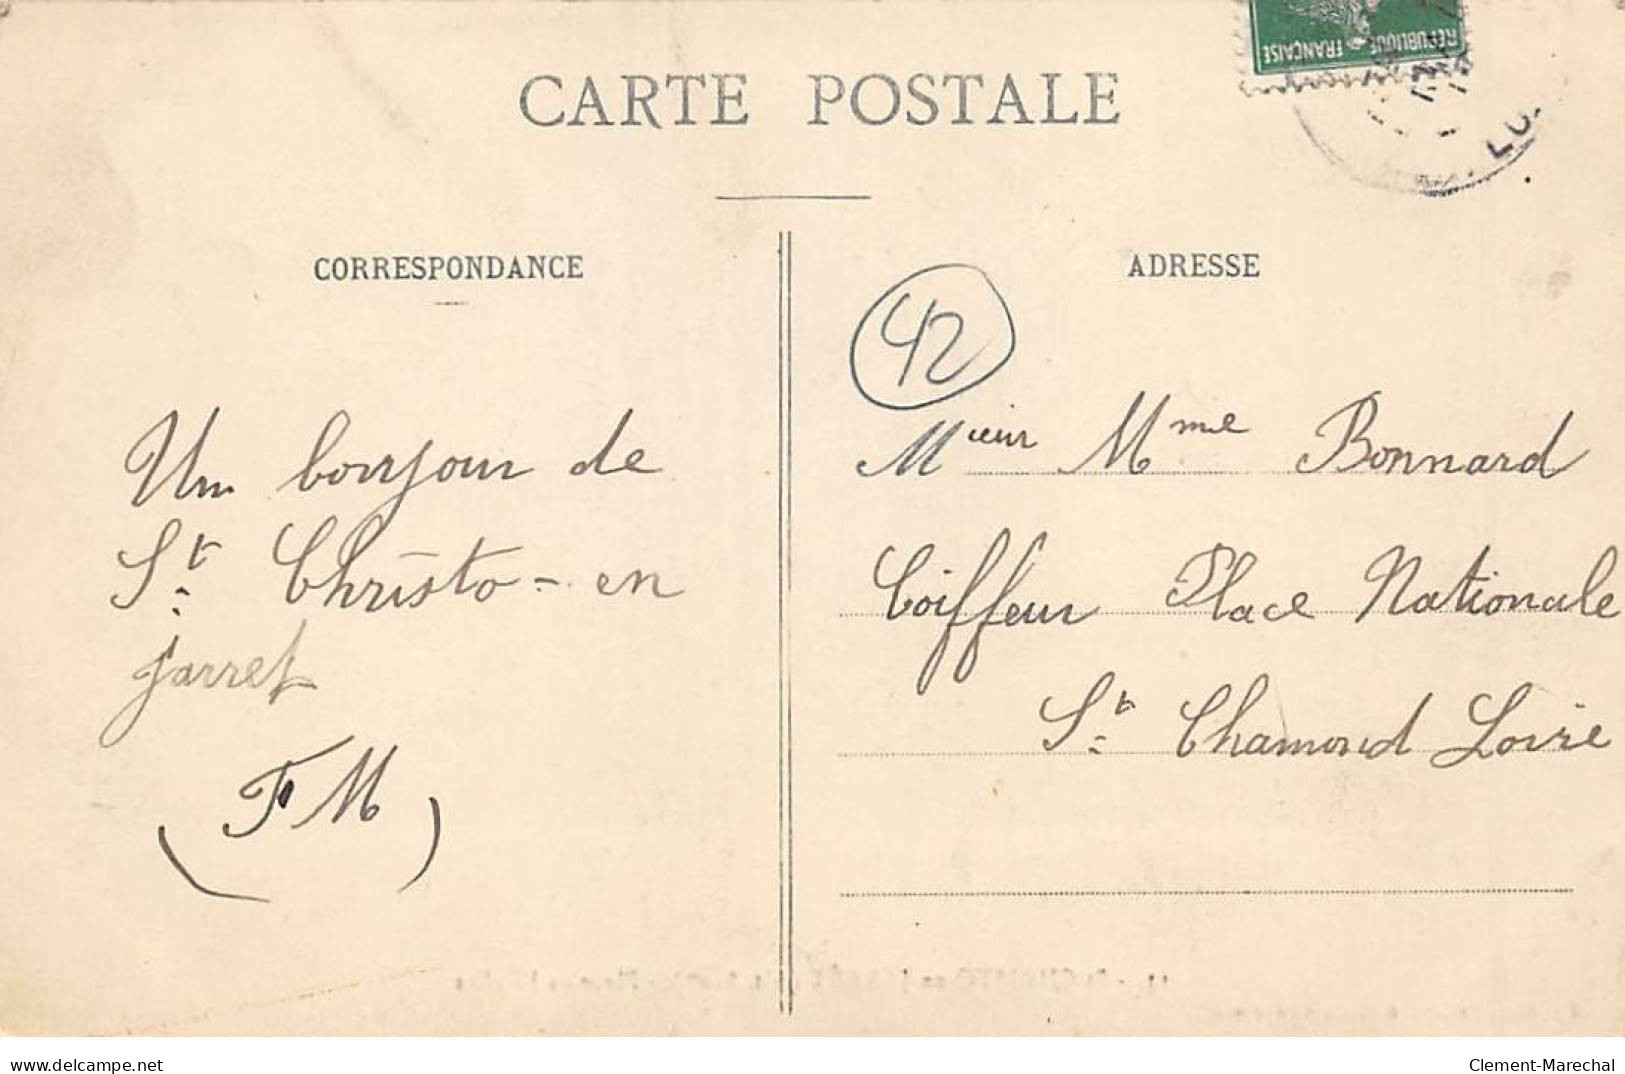 REPUBLIQUE FRANÇAISE
CARTE POSTALE
CORRESPONDANCE
Un bonjour de
St. Christo-en
jarret
(F M)
ADRESSE
42
Mieur Mme Bonnard
Coiffeur Place Nationale
St. Chamond Loire
www.delcampe.net
Clement-Marechal